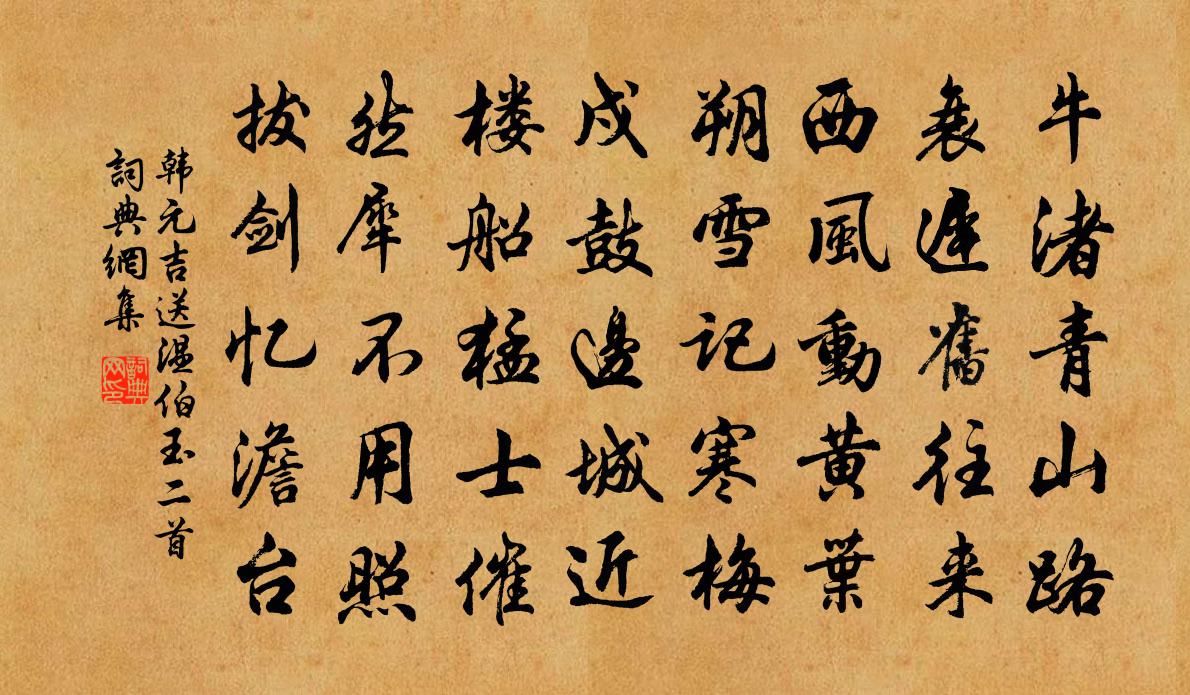 牛渚青山路
衰遲舊往来
西風動黄葉
朔雪记寒梅
戍鼓邊城近
楼船猛士催
然犀不用照
拔剑忆澹台
韩元吉送温伯玉二首
詞典網集
詞典网印